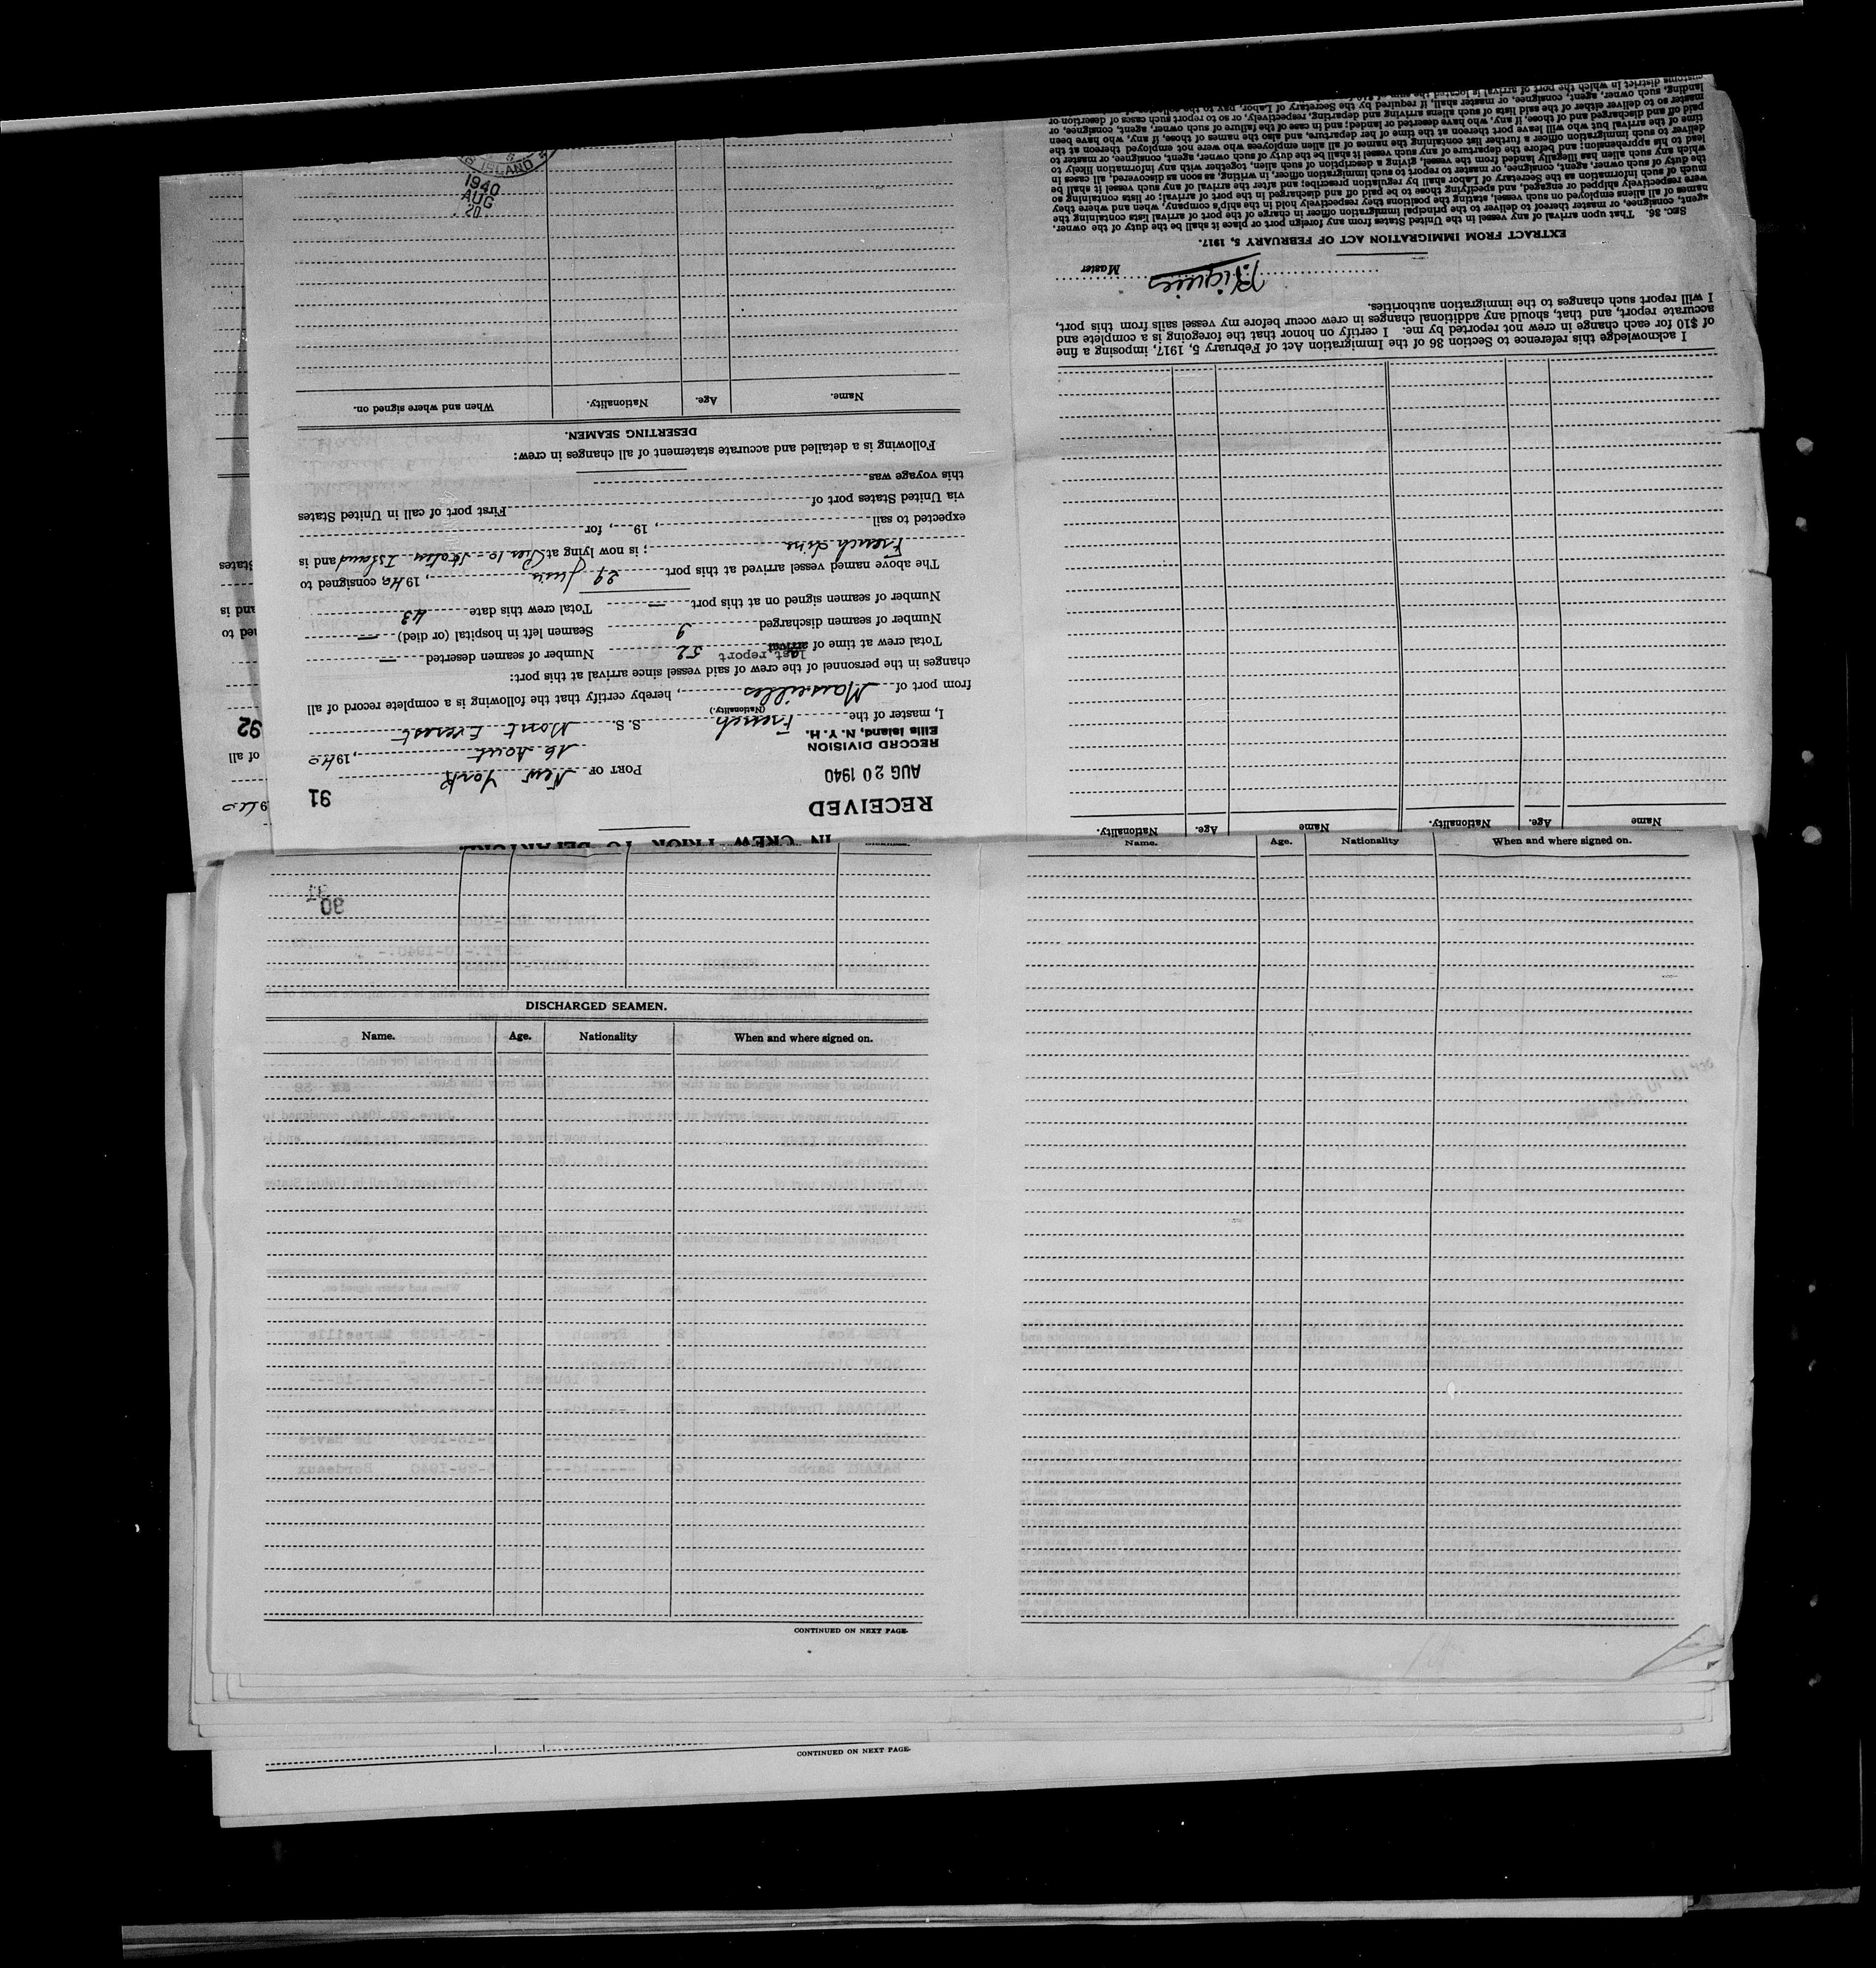 IN CREW PRIOR TO DEPARTURE.
RECEIVED
AUG 20 1940
RECORD DIVISION
Ellis Island, N. Y. H.
91
PORT OF New York
16 Aout, 1940
I, master of the French S. S. Mont Everest
(Nationality.)
from port of Marseilles, hereby certify that the following is a complete record of all
changes in the personnel of the crew of said vessel since arrival at this port:
Total crew at time of arrival last report 52 Number of seamen deserted —
Number of seamen discharged 9 Seamen left in hospital (or died) —
Number of seamen signed on at this port — Total crew this date 43
The above named vessel arrived at this port 29 Juin, 1940 consigned to
French Line; is now lying at Pier 10 Staten Island and is
expected to sail, 19 , for
via United States port of First port of call in United States
this voyage was
Following is a detailed and accurate statement of all changes in crew:
DESERTING SEAMEN.
Name. Age. Nationality. When and where signed on.
1940
AUG
20
ISLAND
92
9
of all
ned to
and is
States
Name Age. Nationality. Name Age. Nationality.
I acknowledge this reference to Section 36 of the Immigration Act of February 5, 1917, imposing a fine
of $10 for each change in crew not reported by me. I certify on honor that the foregoing is a complete and
accurate report, and that, should any additional changes in crew occur before my vessel sails from this port,
I will report such changes to the immigration authorities.
Master
EXTRACT FROM IMMIGRATION ACT OF FEBRUARY 5, 1917.
SEC. 36. That upon arrival of any vessel in the United States from any foreign port or place it shall be the duty of the owner,
agent, consignee, or master thereof to deliver to the principal immigration officer in charge of the port of arrival lists containing the
names of all aliens employed on such vessel, stating the positions they respectively hold in the ship's company, when and where they
were respectively shipped or engaged, and specifying those to be paid off and discharged in the port of arrival; or lists containing so
much of such information as the Secretary of Labor shall by regulation prescribe; and after the arrival of any such vessel it shall be
the duty of such owner, agent, consignee, or master to report to such immigration officer, in writing, as soon as discovered, all cases in
which any such alien has illegally landed from the vessel, giving a description of such alien, together with any information likely to
lead to his apprehension; and before the departure of any such vessel it shall be the duty of such owner, agent, consignee, or master to
deliver to such immigration officer a further list containing the names of all alien employees who were not employed thereon at the
time of the arrival but who will leave port thereon at the time of her departure, and also the names of those, if any, who have been
paid off and discharged and of those, if any, who have deserted or landed; and in case of the failure of such owner, agent, consignee, or
master so to deliver either of the said lists of such aliens arriving and departing, respectively, or so to report such cases of desertion or
landing, such owner, agent, consignee, or master shall, if required by the Secretary of Labor, pay to the
customs district in which the port of arrival is located the sum of $10
90
DISCHARGED SEAMEN.
Name. Age. Nationality When and where signed on.
CONTINUED ON NEXT PAGE.
Name. Age. Nationality When and where signed on.
CONTINUED ON NEXT PAGE.